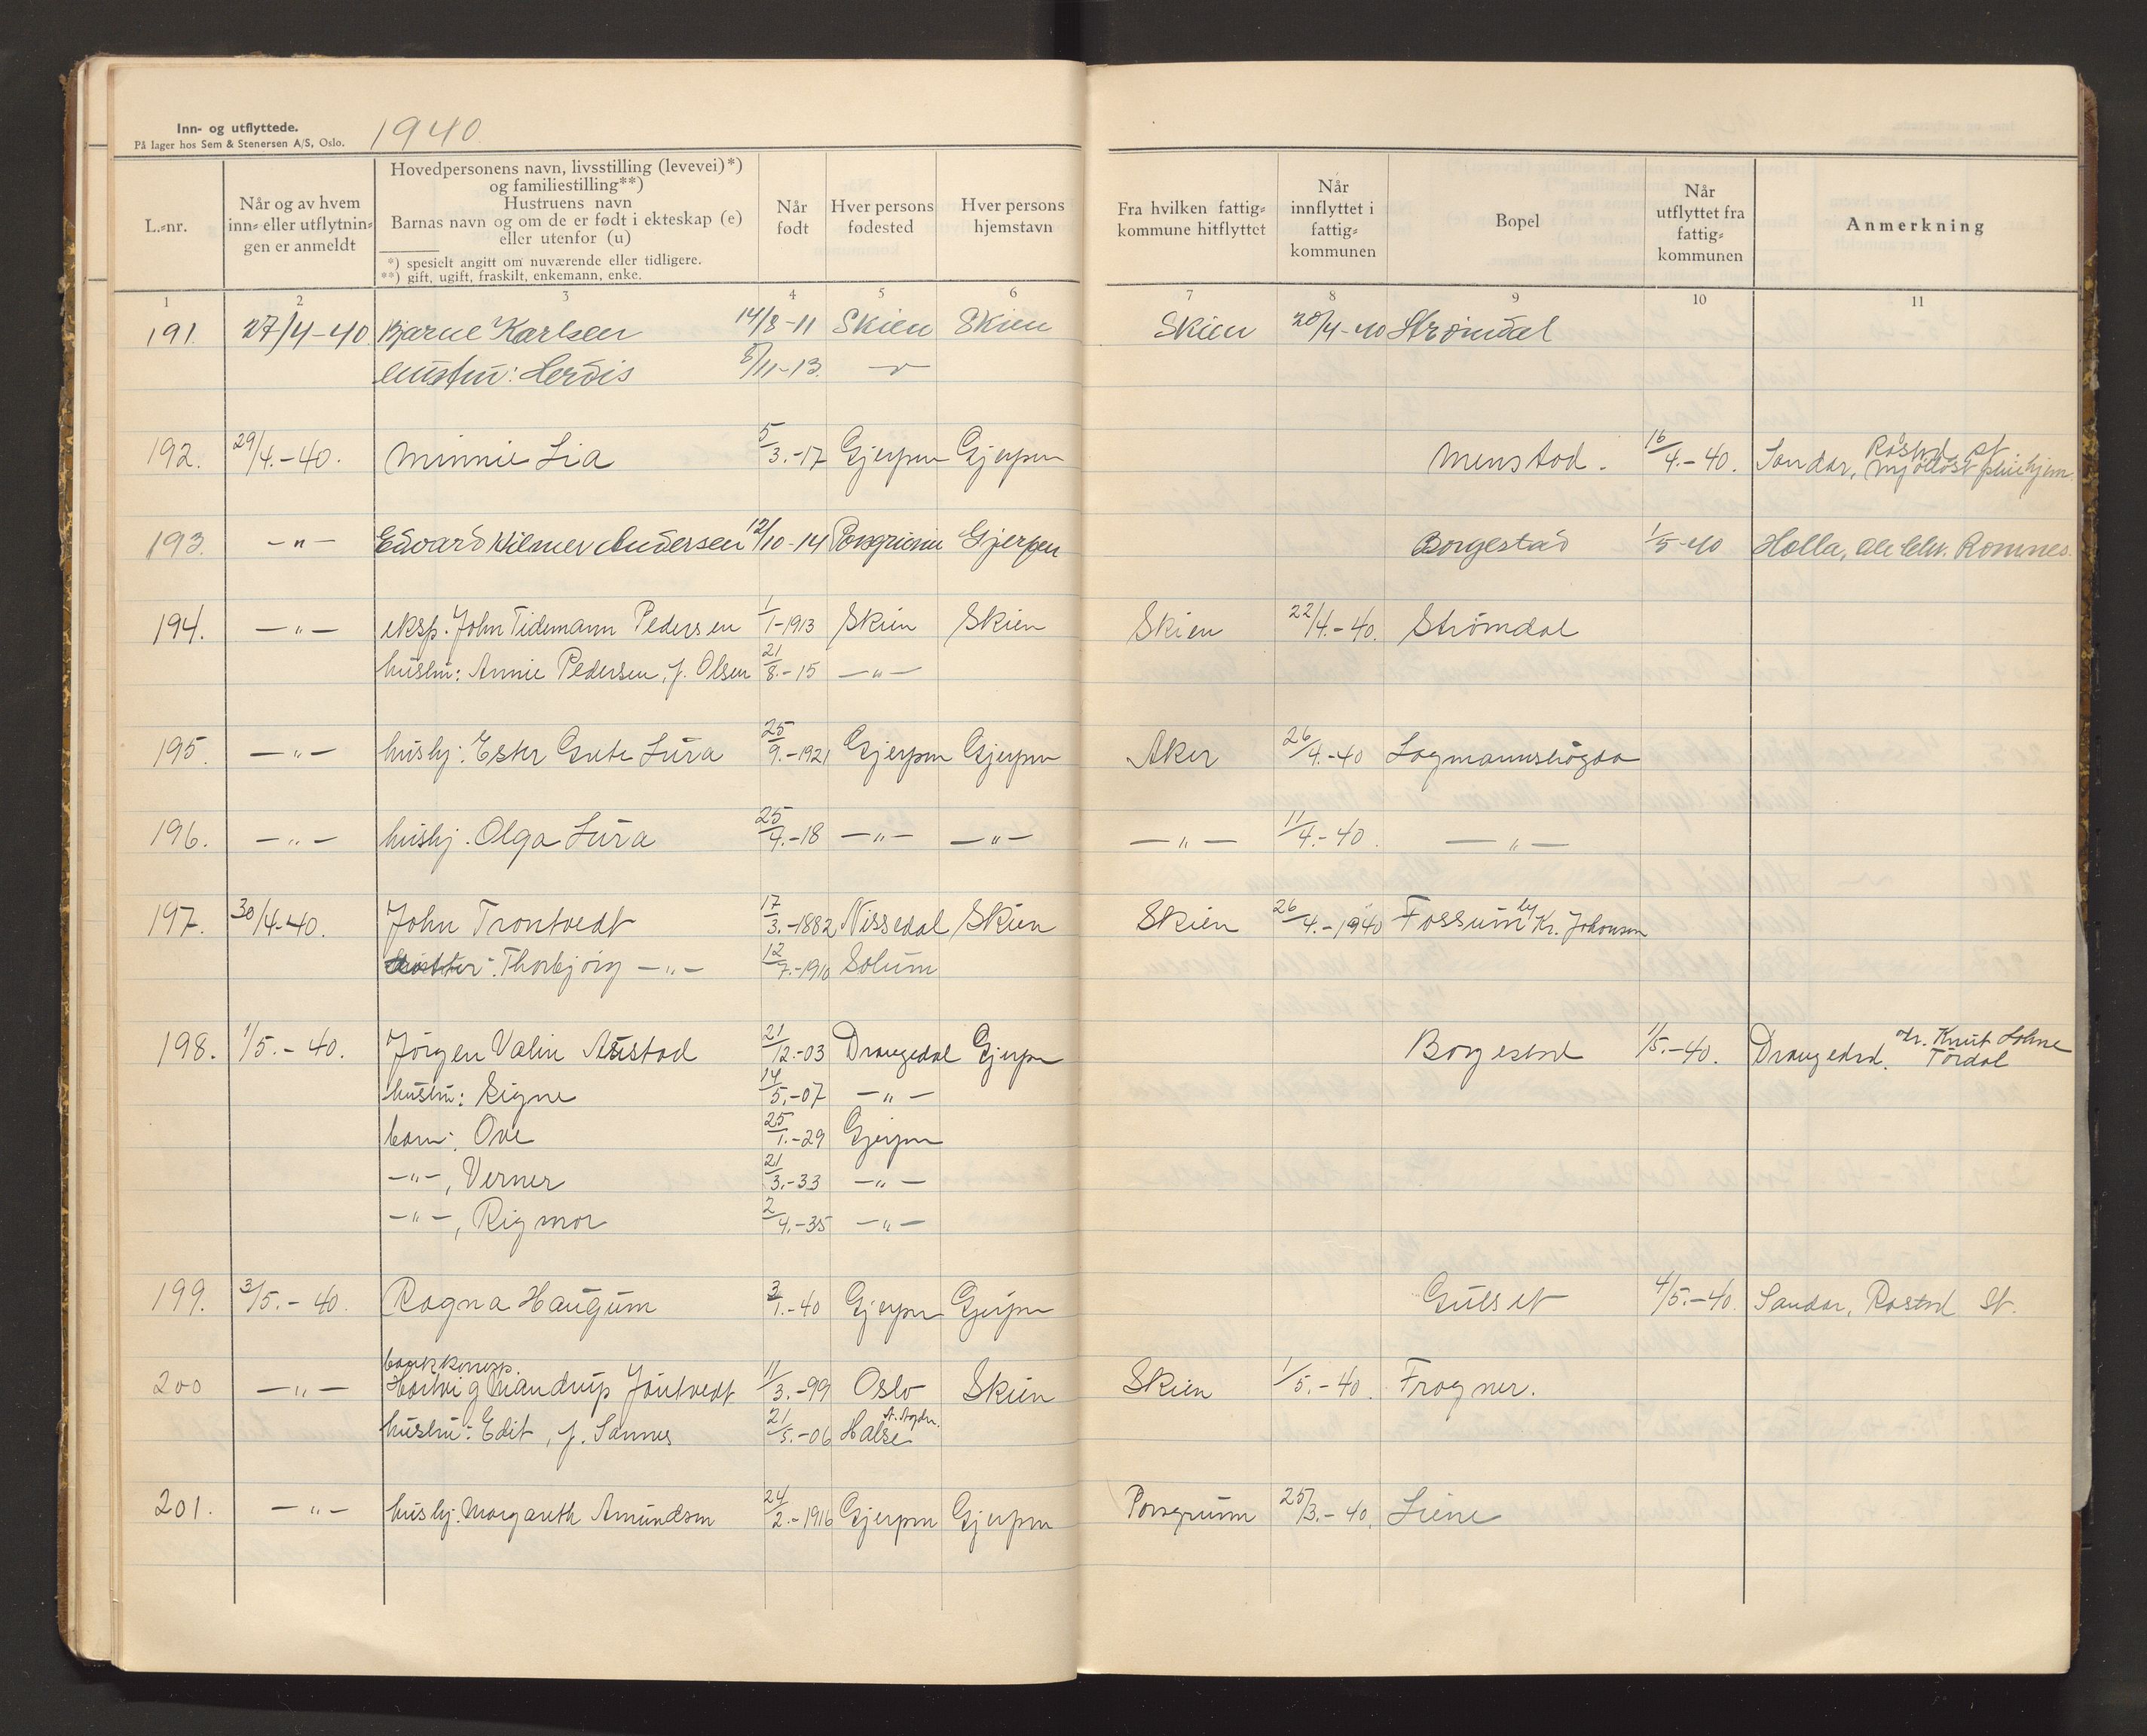 Inn- og utflyttede.
På lager hos Sem & Stenersen A/S, Oslo.
1940
L.-nr.
Når og av hvem inn- eller utflytnin- gen er anmeldt
Hovedpersonens navn, livsstilling (levevei)*)
og familiestilling**)
Hustruens navn
Barnas navn og om de er født i ekteskap (e)
eller utenfor (u)
*) spesielt angitt om nuværende eller tidligere.
**) gift, ugift, fraskilt, enkemann, enke.
Når født
Hver persons fødested
Hver persons hjemstavn
Fra hvilken fattig- kommune hitflyttet
Når innflyttet i fattig- kommunen
Bopel
Når utflyttet fra fattig- kommunen
Anmerkning
1 2 3 4 5 6 7 8 9 10 11
191. 27/4-40 Bjarne Karlsen 14/8-11 Skien Skien Skien 20/4-40 Strømdal
hustru: Herdis 5/11-13. -"-
192. 29/4.-40. Minnie Lia 5/3.-17 Gjerpen Gjerpen Menstad. 16/4.-40. Sandar, Råstad st.
193. -"- Edvard Hilmer Andersen 12/10-14 Porsgrunn Gjerpen Borgestad 1/5-40 Holla, Romnes.
194. -"- eksp. John Tidemann Pedersen 1/1-1913 Skien Skien Skien 22/4.-40. Strømdal
hustru: Annie Pedersen, f. Olsen 21/8.-15 -"-
195. -"- hushj: Ester Grete Lura 25/9.-1921 Gjerpen Gjerpen Aker 26/4.-40 Lagmannshøgda
196. -"- hushj. Olga Lura 25/7.-18 -"- -"- -"- 11/4.-40. -"-
197. 30/4.-40. John Trontvedt 17/3.-1882 Nissedal Skien Skien 26/4.-1940 Fossum by Kr. Johansen
datter: Thorbjørg -"- 12/7.-1910 Solum
198. 1/5.-40. Jørgen Valin Austad 21/12.-03 Drangedal Gjerpen Borgestad 1/5.-40. Drangedal. Knut Lohne Tørdal
hustru: Signe 14/5.-07 -"-
barn: Ove 25/1.-29 Gjerpen
-"-, Verner 21/3.-33 -"-
-"-, Rigmor 2/4.-35 -"-
199. 3/5.-40. Ragna Haugum 3/1.-40 Gjerpen Gjerpen Gulset 4/5.-40. Sandar, Råstad St.
200 -"- Hartvig Mandrup Jøntvedt 11/3.-99 Oslo Skien Skien 1/5.-40. Frogner.
hustru: Edit, f. Sannes 21/5.-06 Halse
201. -"- hushj. Margareth Amundsen 24/2.-1916 Gjerpen Gjerpen Porsgrunn 25/3.-40. Liene